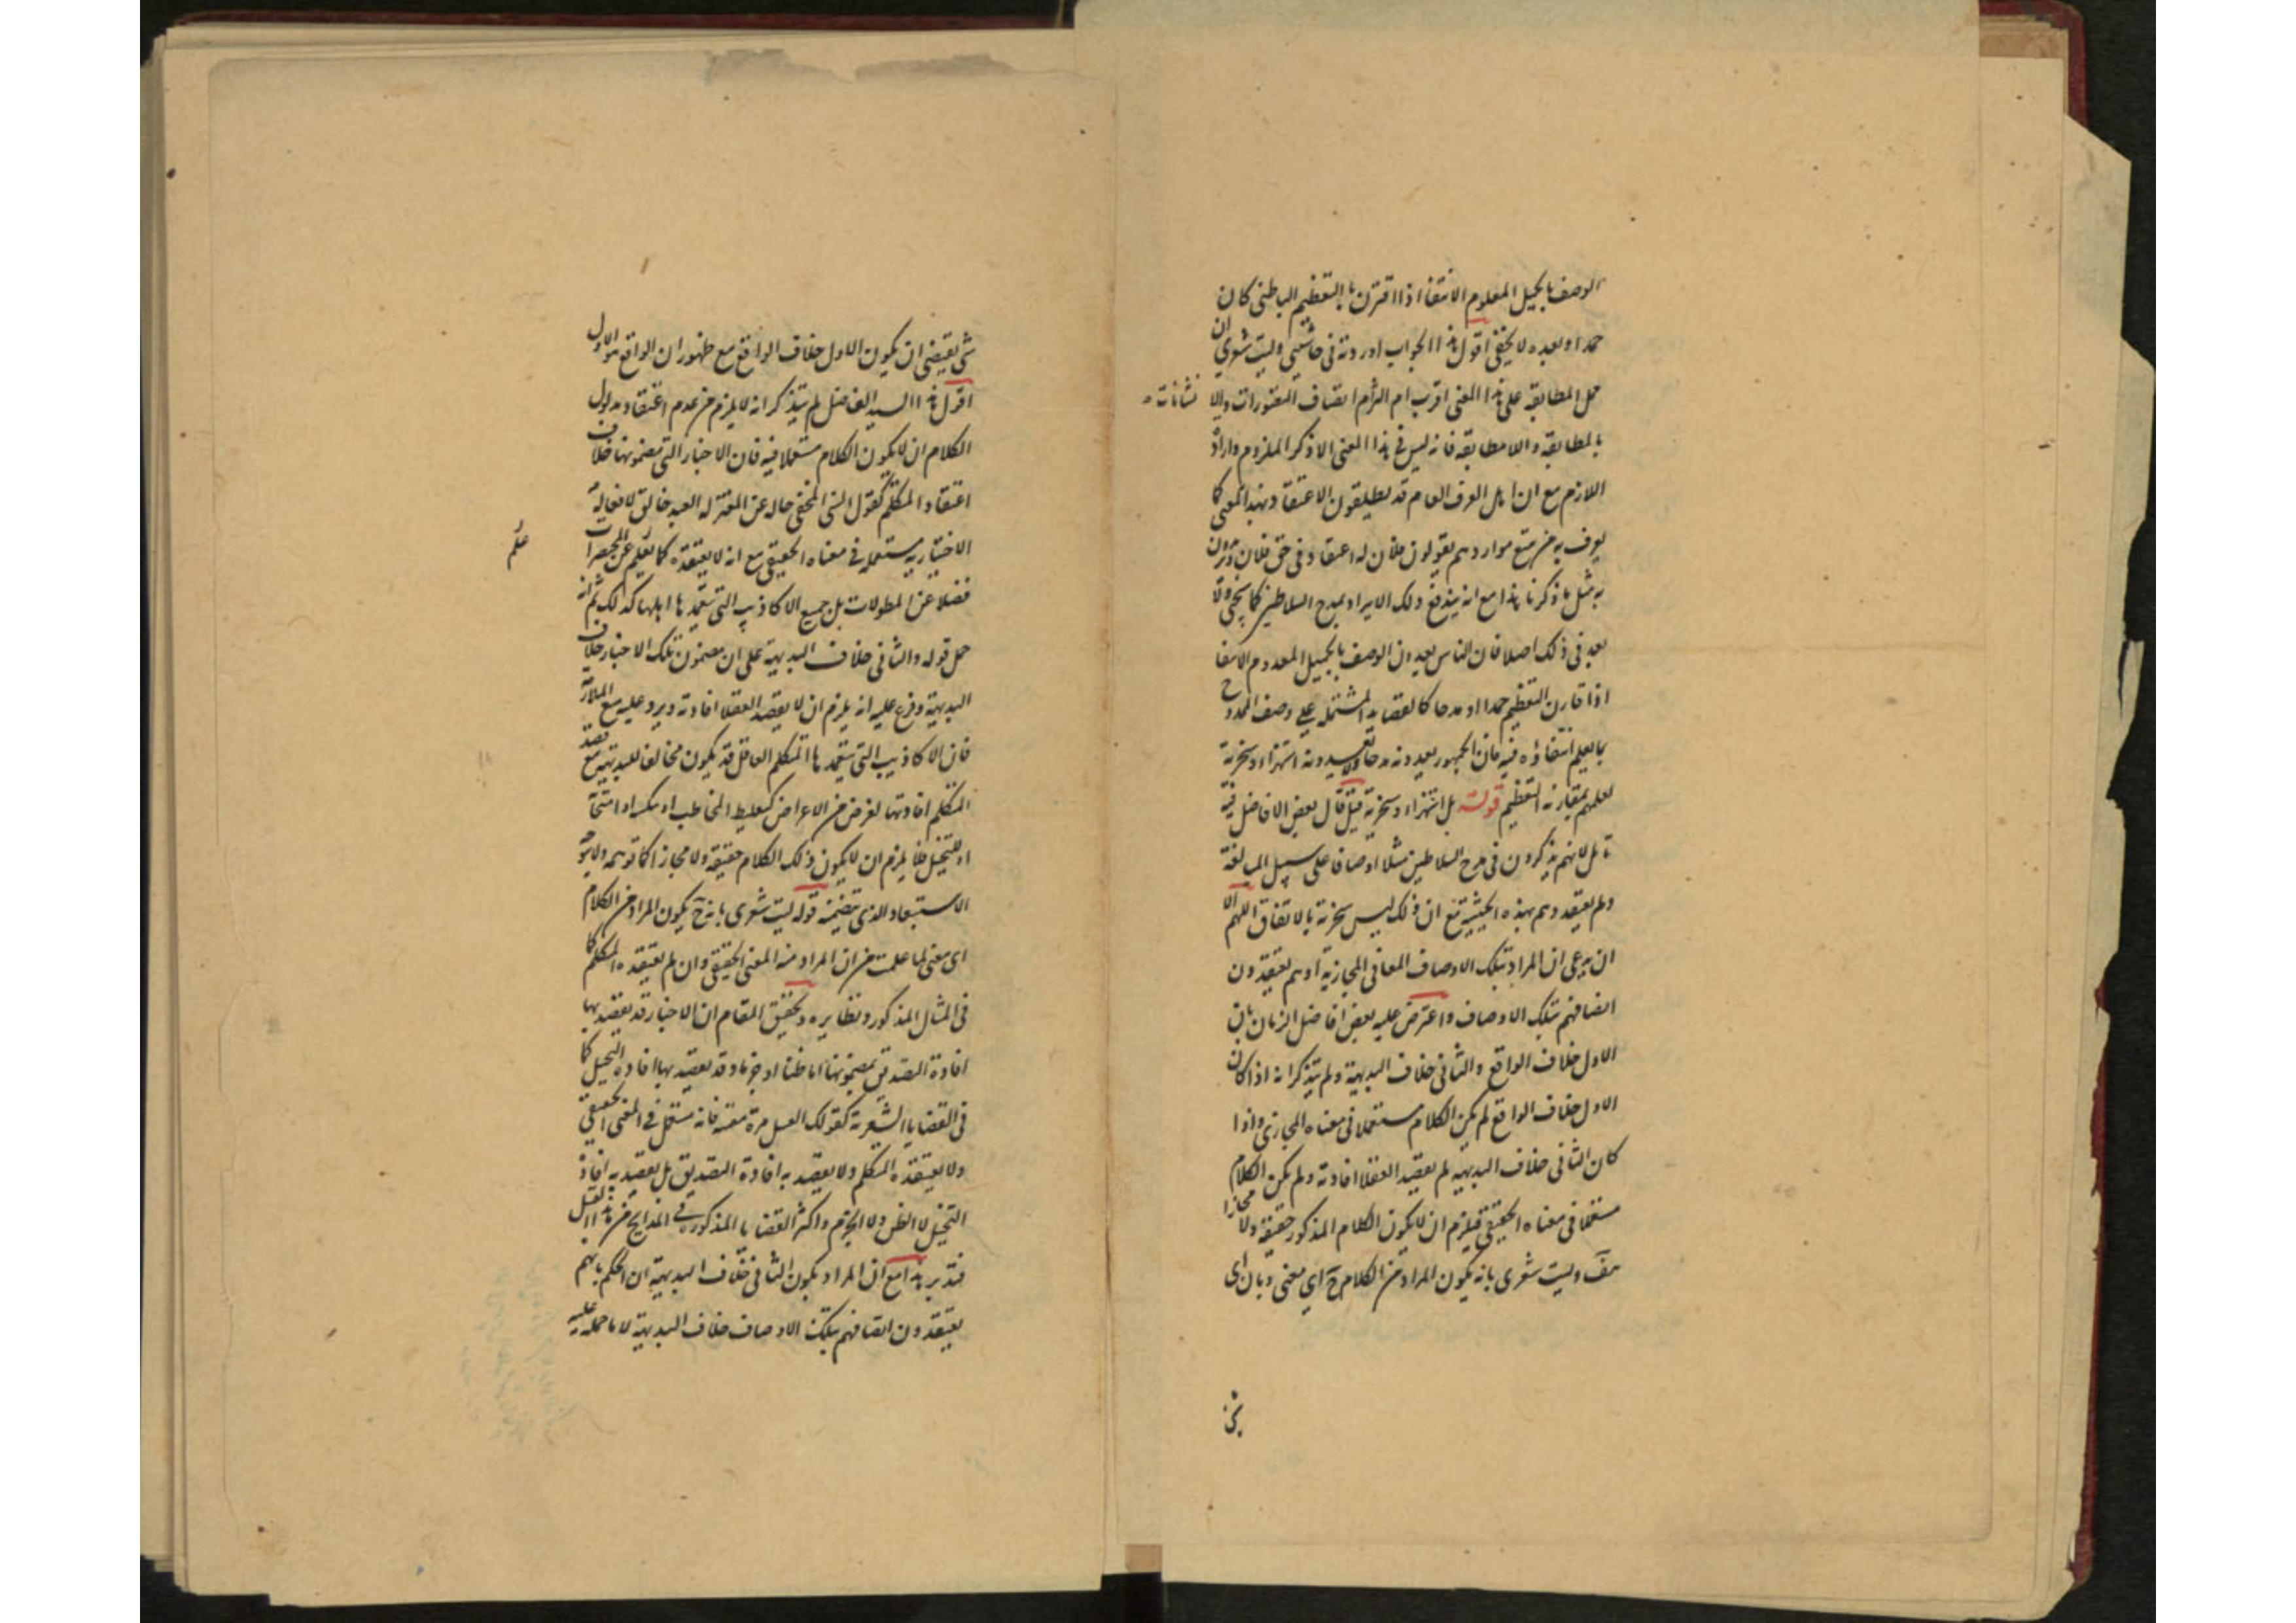 الوصف بالجميل المعلوم الانتفا اذا اقترن بالتعظيم الباطنى كان
حمدا وبعده لا يخفى اقول هذا الجواب اوردته فى حاشيتى وليت شعرى ان
حمل المطابقة على هذا المعنى اقرب ام التزام اتصاف التصورات والانشائات
بالمطابقة واللامطابقة فانه ليس فى هذا المعنى الا ذكر الملزوم وارادة
اللازم مع ان اهل العرف العام قد يطلقون الاعتقاد بهذا المعنى كما
يعرف من تتبع مواردهم يقولون فلان له اعتقاد فى حق فلان
بمثل ما ذكرنا هذا مع انه يندفع ذلك الايراد بمدح السلاطين كما يجئ ولا
بعد فى ذلك اصلا فان الناس يعدون الوصف بالجميل المعدوم الانتفا
اذا قارن التعظيم حمدا او مدحا كالقصايد المشتملة على وصف الممدوح
بما يعلم انتفاؤه فيه فان الجمهور يعدونه مدحا ولا يعدونه استهزاء وسخرية
لعلمهم بمقارنة التعظيم قوله بل استهزاء وسخرية قيل قال بعض الافاضل فيه
تامل لانهم يذكرون فى مدح السلاطين مثلا اوصافا على سبيل المبالغة
ولم يعتقدوهم بهذه الحيثية مع ان ذلك ليس سخرية بالاتفاق اللهم الا
ان يدعى ان المراد بتلك الاوصاف المعانى المجازية او هم يعتقدون
اتصافهم بتلك الاوصاف واعترض عليه بعض افاضل الزمان بان
الاول خلاف الواقع والثانى خلاف البديهة ولم يتذكر انه اذا كان
الاول خلاف الواقع لم يكن الكلام مستعملا فى معناه المجازى واذا
كان الثانى خلاف البديهة لم يقصد العقلا افادته ولم يكن الكلام
مستعملا فى معناه الحقيقى فيلزم ان لا يكون الكلام المذكور حقيقة ولا مجازا
وليت شعرى بانه يكون المراد من الكلام ح اى معنى وبان اى
شئ
شئ يقتضى ان يكون الاول خلاف الواقع مع ظهور ان الواقع هو الاول
اقول هذا السيد الفاضل لم يتذكر انه لا يلزم من عدم اعتقاد مدلول
الكلام ان لا يكون الكلام مستعملا فيه فان الاخبار التى مضمونها خلاف
اعتقاد المتكلم كقول السنى المخفى حاله عن المعتزله العبد خالق لافعاله
الاختيارية مستعمله فى معناه الحقيقى مع انه لا يعتقده كما يعلم عن المختصرات
علم
فضلا عن المطولات بل جميع الاكاذيب التى يتعمدها اهلها كذلك ثم انه
حمل قوله والثانى خلاف البديهة على ان مضمون تلك الاخبار خلاف
البديهة وفرع عليه انه يلزم ان لا يقصد العقلا افادته ويرد عليه منع الملازمة
فان الاكاذيب التى يتعمدها المتكلم العاقل قد يكون مخالفا للبديهة مع قصد
المتكلم افادتها لغرض من الاغراض كتغليط المخاطب او
او للتخيل فلا يلزم ان لا يكون ذلك الكلام حقيقة ولا مجازا كما توهمه ولا يتوجه
الاستبعاد الذى تضمنه قوله ليت شعرى بانه ح يكون المراد من الكلام
اى معنى لما علمت من ان المراد منه المعنى الحقيقى وان لم يعتقده المتكلم كما
فى المثال المذكور ونظايره وتحقيق المقام ان الاخبار قد يقصد بها
افادة التصديق بمضمونها اما ظنا او جزما وقد يقصد بها افادة التخييل كما
فى القضايا الشعرية كقولك العسل مرة مقيئة فانه مستعمل فى المعنى الحقيقى
ولا يعتقده المتكلم ولا يقصد به افادة التصديق بل يقصد به افادة
التخييل لا الظن ولا الجزم واكثر القضايا المذكورة فى المدايح من هذا القبيل
فتدبر هذا مع ان المراد بكون الثانى خلاف البديهة ان الحكم بانهم
يعتقدون اتصافهم بتلك الاوصاف خلاف البديهة لا ما حمله عليه